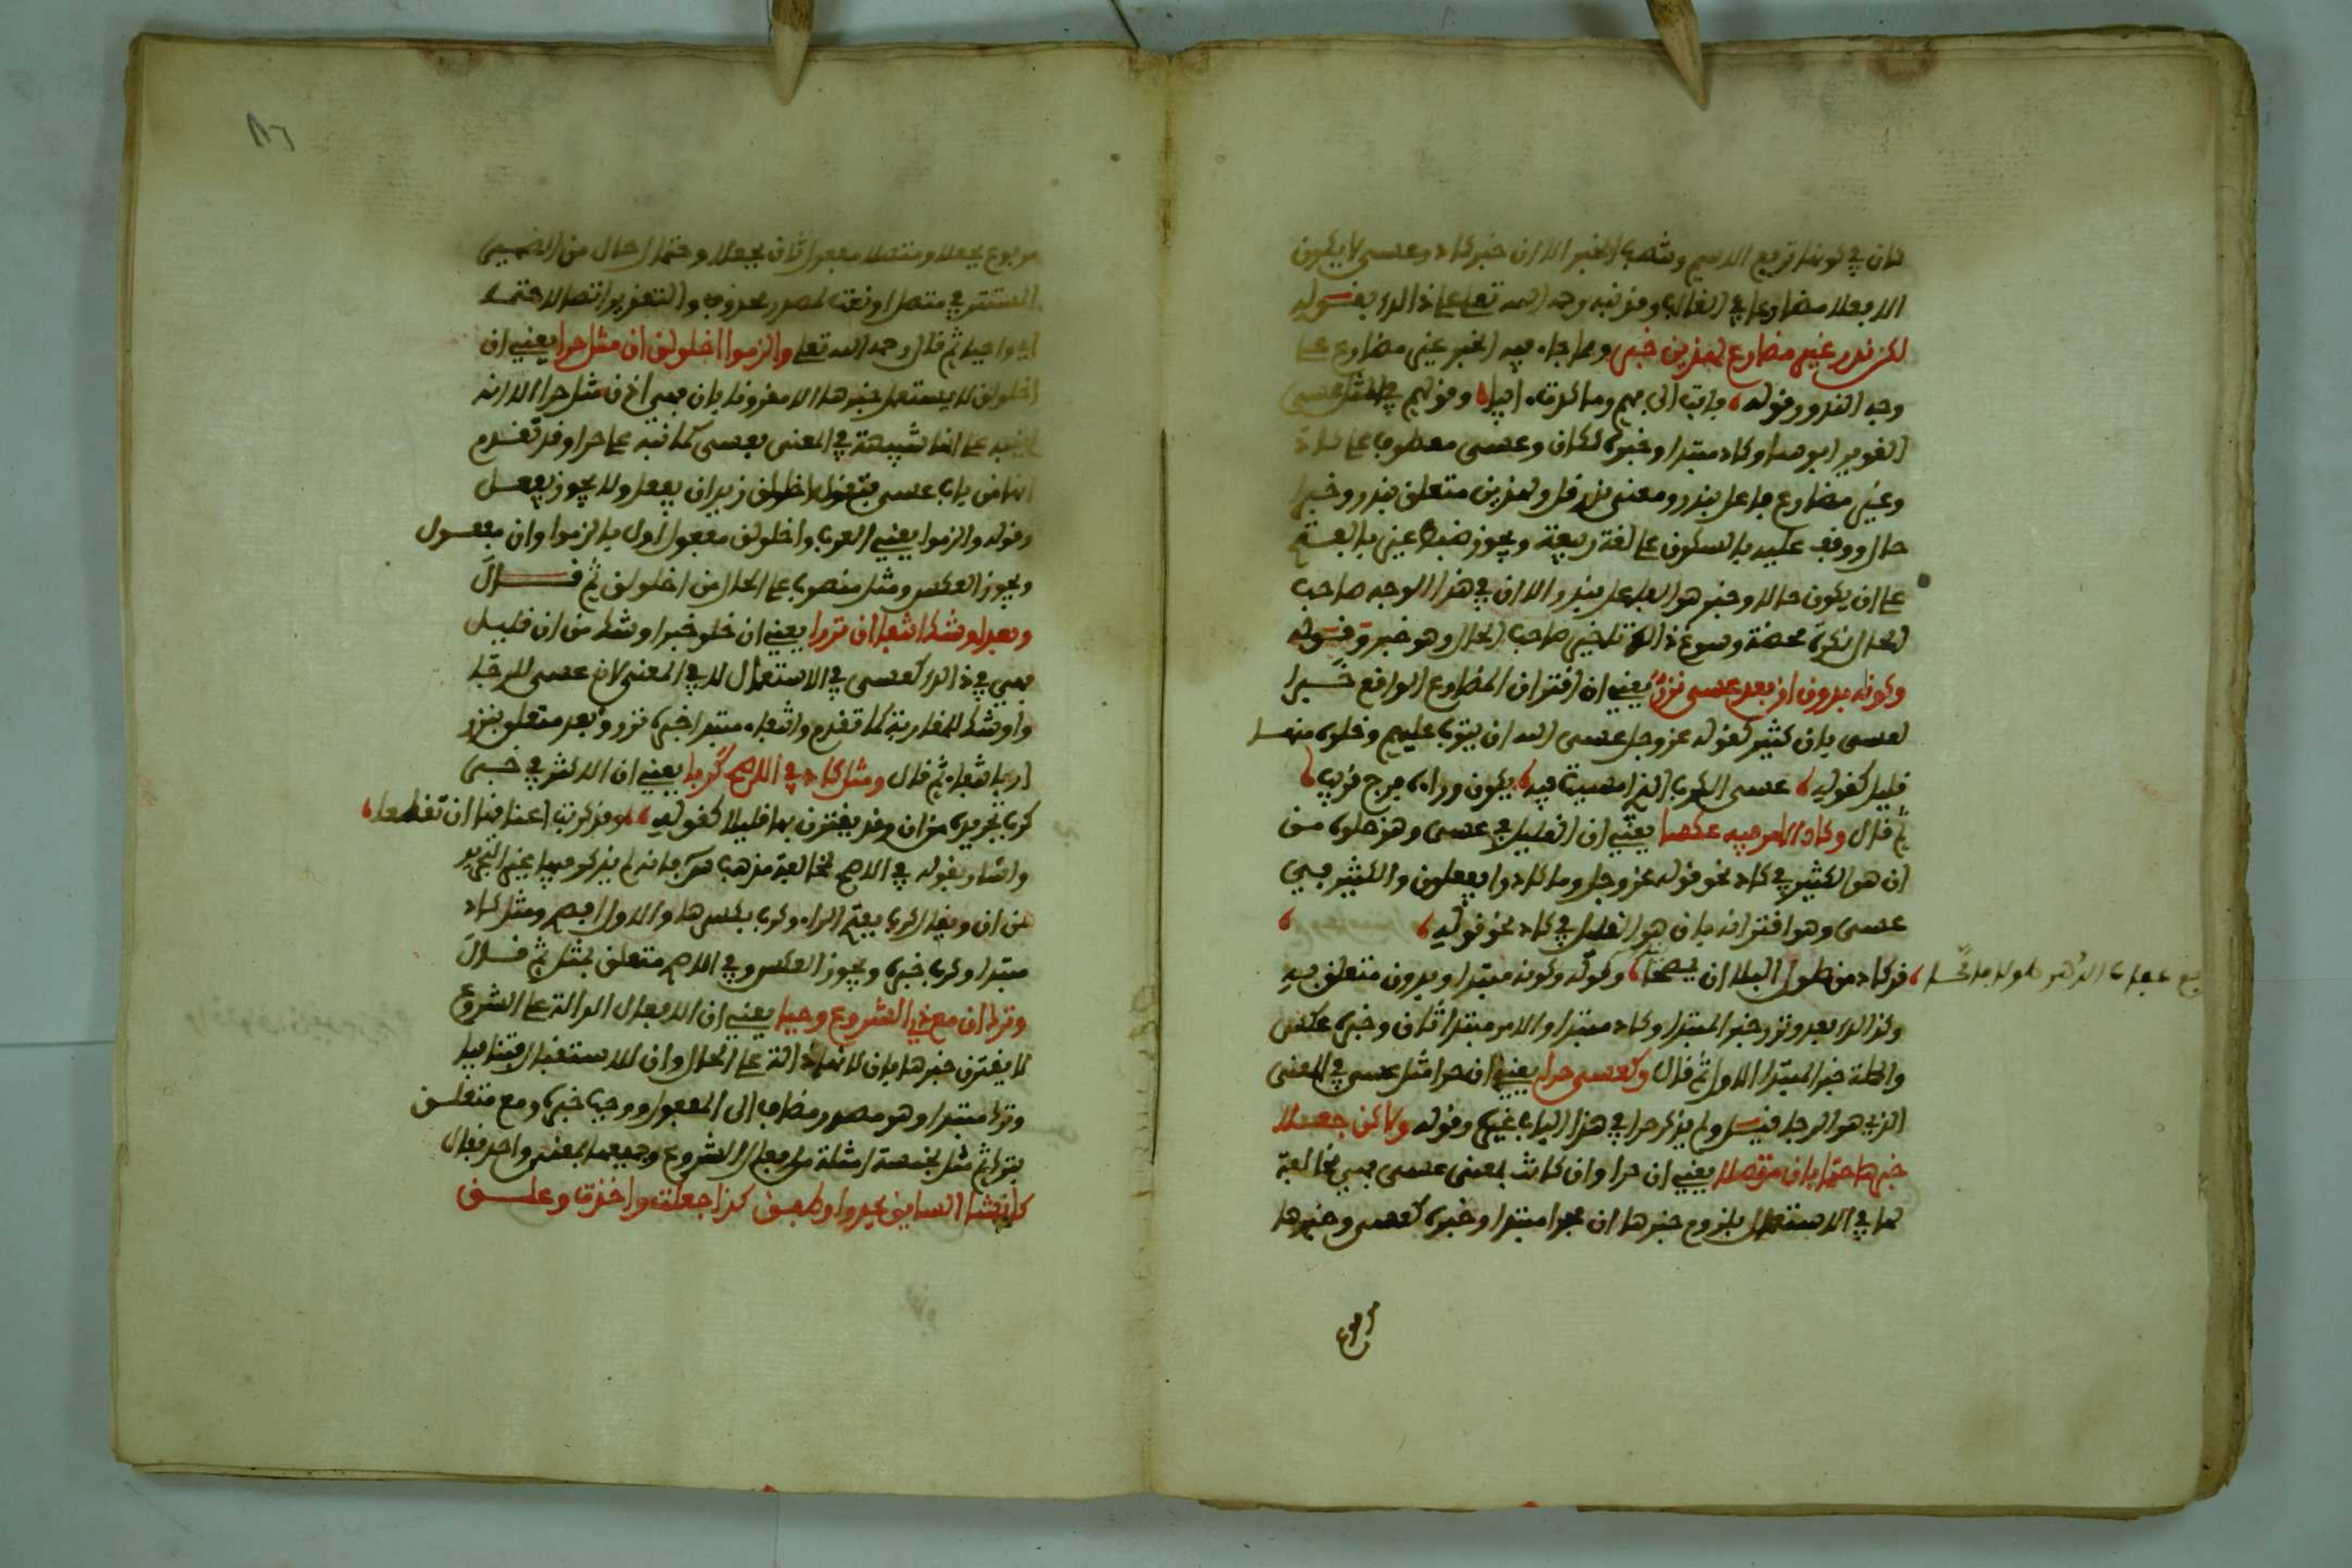 كان في كونها ترفع الاسم وتنصب الخبر الا ان خبر كاد وعسى لا يكون
الا فعلا مضارعا في الغالب وقد نبه رحمه الله تعلى على ذالك بقوله
لكن ندر غير مضارع لهذين خبر ومما جاء فيه الخبر غير مضارع على
وجه الندور قوله فابت الى فهم وما كدت ءايبا وقولهم في المثل عسى
الغوير ابوسا وكاد مبتدا وخبره ككان وعسى معطوف على كاد
وغير مضارع فاعل بندر ومعنى ندر قل ولهذين متعلق بندر وخبر
حال ووقف عليه بالسكون على لغة ربيعة ويجوز ضبط غير بالفتح
على ان يكون حالا وخبر هو الفاعل بندر الا ان في هذا الوجه صاحب
الحال نكرة محضة وسوغ ذالك تاخير صاحب الحال وهو خبر وقوله
وكونه بدون ان بعد عسى نزر يعني ان اقتران المضارع الواقع خبرا
لعسى بان كثير كقوله عز وجل عسى الله ان يتوب عليهم وخلوه منها
قليل كقوله عسى الكرب الذي امسيت فيه يكون وراءه فرج قريب
ثم قال وكاد الامر فيه عكسا يعني ان القليل في عسى وهو خلوه من
ان هو الكثير في كاد نحو قوله عز وجل وما كادوا يفعلون والكثير في
عسى وهو اقترانه بان هو القليل في كاد نحو قوله
قد كاد من طول البلا ان يمصحا وكونه مبتدا وبدون متعلق به
وكذالك بعد ونزر خبر المبتدا وكاد مبتدا والامر مبتدا ثان وخبره عكس
والجملة خبر المبتدا الاول ثم قال وكعسى حرا يعني ان حرا مثل عسى في المعنى
الذي هو الرجا ولم يذكر حرا في هذا الباب غيره وقوله ولاكن جعلا
خبرها حتما بان متصلا يعني ان حرا وان كانت بمعنى عسى فهي مخالفة
لها في الاستعمال بلزوم خبرها ان فحرا مبتدا وخبره كعسى وخبرها
مرفوع بجعلا ومتصلا مفعول ثان بجعلا وحتما حال من الضمير
المستتر في متصلا او نعت لمصدر محذوف والتقدير اتصالا حتما
اي واجبا ثم قال رحمه الله تعلى والزموا اخلولق ان مثل حرا يعني ان
اخلولق لا يستعمل خبرها الا مقرونا بان فهي اذن مثل حرا الا انه
على انها شبيهة في المعنى بعسى كما نبه على حرا وقد تقدم
انها من باب عسى فتقول اخلولق زيد ان يفعل ولا يجوز يفعل
وقوله والزموا يعني العرب واخلولق مفعول اول بالزموا وان مفعول
ويجوز العكس ومثل منصوب على الحال من اخلولق ثم قال
وبعد اوشك انتفا ان نزرا يعني ان خلو خبر اوشك من ان قليل
فهي في ذالك كعسى في الاستعمال لا في المعنى لان عسى للرجا
واوشك للمقاربة كما تقدم وانتفاء مبتدا خبره نزر وبعد متعلق بنزر
او بانتفاء ثم قال ومثل كاد في الاصح كربا يعني ان الاكثر في خبر
كرب تجريده من ان وقد يقترن بها قليلا كقوله وقد كربت اعناقها ان تقطعا
واشار بقوله في الاصح لمخالفة مذهب س فانه لم يذكر فيها غير التجريد
من ان ويقال كرب بفتح الراء وكرب بكسرها والاول افصح ومثل كاد
مبتدا وكرب خبره ويجوز العكس وفي الاصح متعلق بمثل ثم قال
وترك ان مع ذي الشروع وجبا يعني ان الافعال الدالة على الشروع
لا يقترن خبرها بان لانها دالة على الحال وان للاستقبال فتنافيا
وترك مبتدا وهو مصدر مضاف الى المفعول ووجب خبره ومع متعلق
بترك ثم مثل بخمسة امثلة من افعال الشروع وجميعها بمعنى واحد فقال
كانشا السايق يحدو وطفق كذا جعلت واخذت وعلق